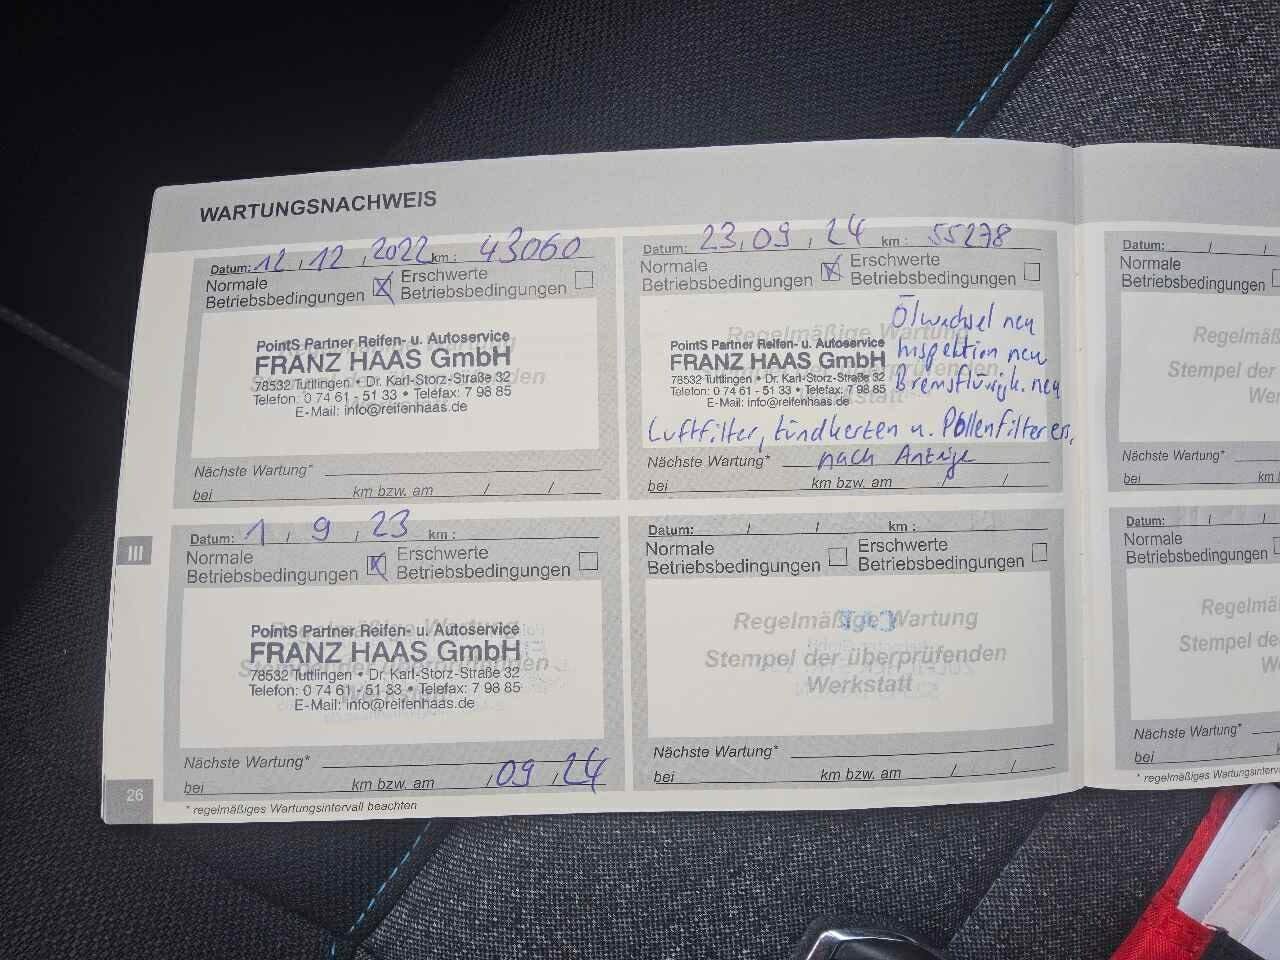 WARTUNGSNACHWEIS
Datum: 12, 12, 2022 km: 43060
Normale Betriebsbedingungen X Erschwerte Betriebsbedingungen
PointS Partner Reifen- u. Autoservice
FRANZ HAAS GmbH
78532 Tuttlingen • Dr. Karl-Storz-Straße 32
Telefon: 0 74 61 - 51 33 • Telefax: 7 98 85
E-Mail: info@reifenhaas.de
Nächste Wartung*
bei km bzw. am / /
Datum: 1, 9, 23 km:
Normale Betriebsbedingungen X Erschwerte Betriebsbedingungen
PointS Partner Reifen- u. Autoservice
FRANZ HAAS GmbH
78532 Tuttlingen • Dr. Karl-Storz-Straße 32
Telefon: 0 74 61 - 51 33 • Telefax: 7 98 85
E-Mail: info@reifenhaas.de
Nächste Wartung*
bei km bzw. am , 09, 24
* regelmäßiges Wartungsintervall beachten
III
26
Datum: 23, 09, 24 km: 55278
Normale Betriebsbedingungen X Erschwerte Betriebsbedingungen
Regelmäßige Wartung
Ölwechsel neu
Inspektion neu
Bremsflüssigk. neu
PointS Partner Reifen- u. Autoservice
FRANZ HAAS GmbH
78532 Tuttlingen • Dr. Karl-Storz-Straße 32
Telefon: 0 74 61 - 51 33 • Telefax: 7 98 85
E-Mail: info@reifenhaas.de
Luftfilter, Zündkerzen u. Pollenfilter ern,
Nächste Wartung* nach Anzeige
bei km bzw. am / /
Datum: / / km:
Normale Betriebsbedingungen Erschwerte Betriebsbedingungen
Regelmäßige Wartung
Stempel der überprüfenden
Werkstatt
Nächste Wartung*
bei km bzw. am / /
Datum: / /
Normale
Betriebsbedingungen
Regelmäßige
Stempel der
Nächste Wartung*
bei km
Datum: / /
Normale
Betriebsbedingungen
Stempel der
Nächste Wartung*
bei
* regelmäßiges